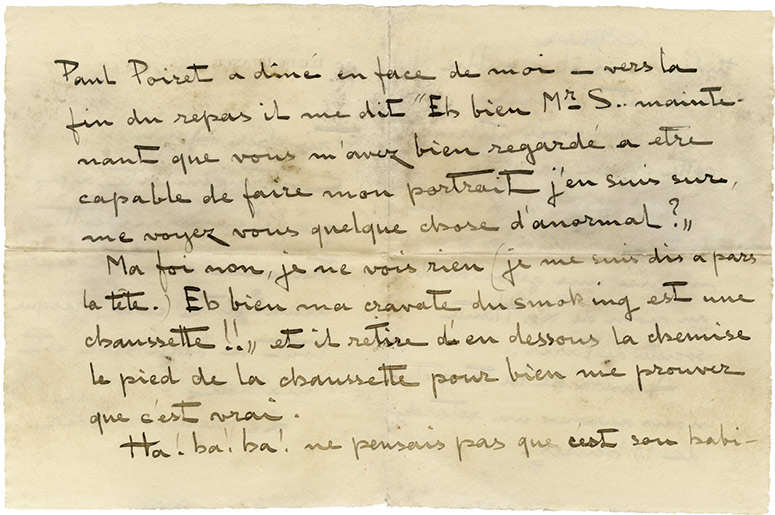 Paul Poiret a diné en face de moi – vers la
fin du repas il me dit "Eh bien Mr S.. mainte-
nant que vous m'avez bien regardé a etre
capable de faire mon portrait j'en suis sur,
me voyez vous quelque chose d'anormal ?"
Ma foi non, je ne vois rien (je me suis dis a pars
la tête.) Eh bien ma cravate du smoking est une
chaussette !!" et il retire d'en dessous la chemise
le pied de la chaussette pour bien me prouver
que c'est vrai.
Ha! ha! ha! ne pensais pas que c'est son habi-